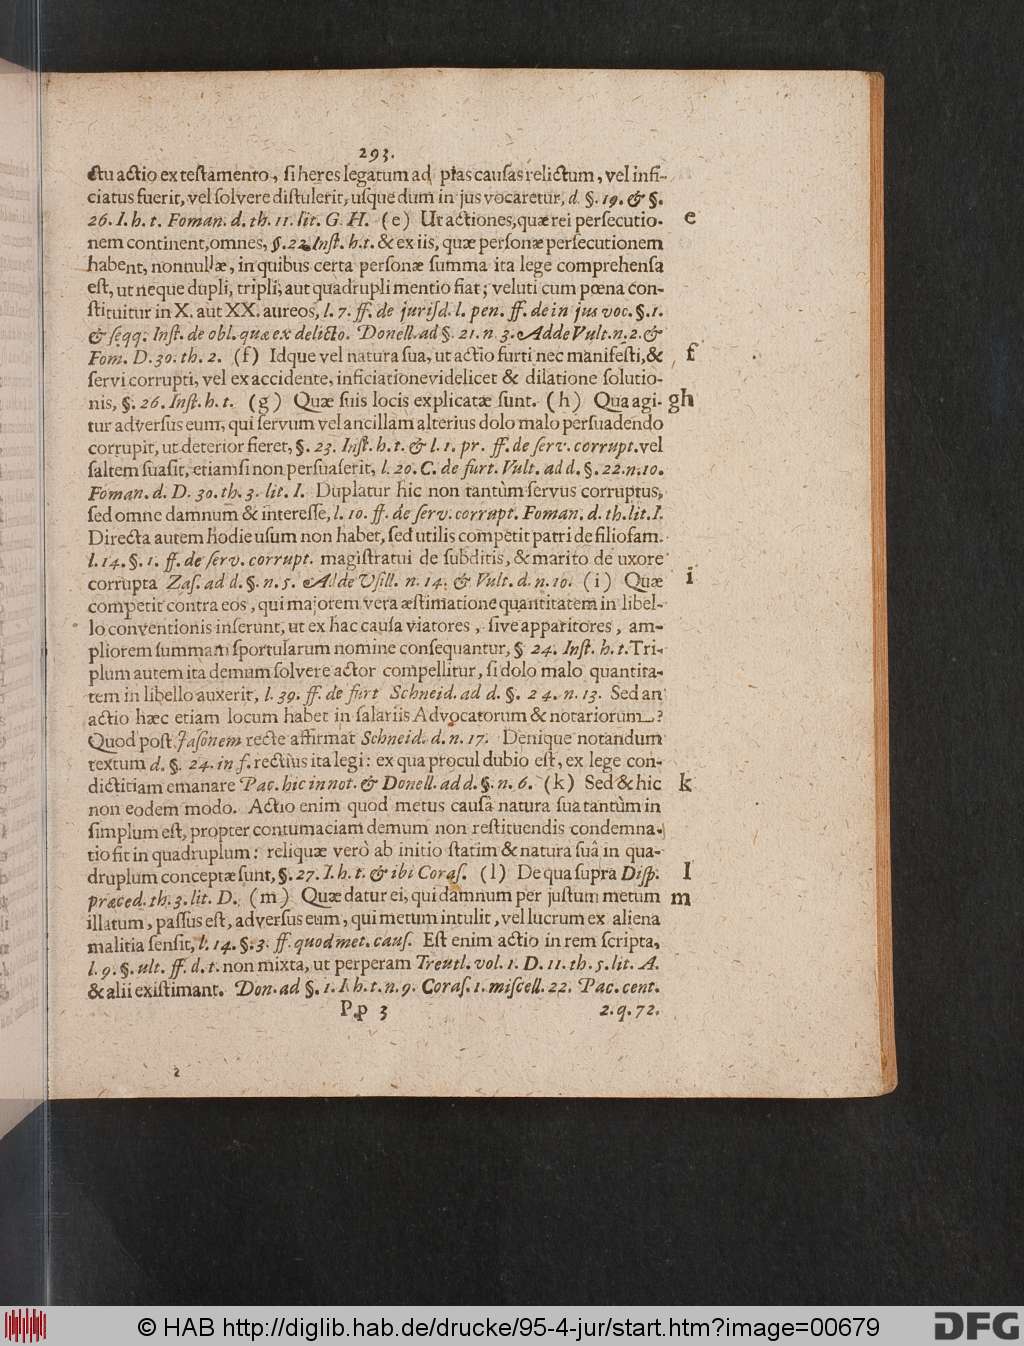 293.
ctu actio ex testamento, si heres legatum ad pias causas relictum, vel infi-
ciatus fuerit, vel solvere distulerit, usque dum in jus vocaretur, d §. 19. & §.
26. I. h. t. Foman. d. th. 11. lit. G. H. (e) Ut actiones, quæ rei persecutio- e
nem continent, omnes, §. 22. Inst. h. t. & ex iis, quæ personæ persecutionem
habent, nonnullæ, in quibus certa personæ summa ita lege comprehensa
est, ut neque dupli, tripli, aut quadrupli mentio fiat; veluti cum pœna con-
stituitur in X. aut XX. aureos, l. 7. ff. de jurisd. l. pen. ff. de in jus voc. §. 1.
& seqq. Inst. de obl. quæ ex delicto. Donell. ad §. 21. n 3. Adde Vult. n. 2. &
Fom. D. 30. th. 2. (f) Idque vel natura sua, ut actio furti nec manifesti, & f
servi corrupti, vel ex accidente, inficiatione videlicet & dilatione solutio-
nis, §. 26. Inst. h. t. (g) Quæ suis locis explicatæ sunt. (h) Qua agi- gh
tur adversus eum, qui servum vel ancillam alterius dolo malo persuadendo
corrupit, ut deterior fieret, §. 23. Inst. h. t. & l. 1. pr. ff. de serv. corrupt. vel
saltem suasit, etiamsi non persuaserit, l. 20. C. de furt. Vult. ad d. §. 22. n. 10.
Foman. d. D. 30. th. 3. lit. I. Duplatur hic non tantùm servus corruptus,
sed omne damnum & interesse, l. 10. ff. de serv. corrupt. Foman. d. th. lit. I.
Directa autem hodie usum non habet, sed utilis competit patri de filiofam.
l. 14. §. 1. ff. de serv. corrupt. magistratui de subditis, & marito de uxore
corrupta Zas. ad d. §. n. 5. Adde Usill. n. 14. & Vult. d. n. 10. (i) Quæ i
competit contra eos, qui majorem vera æstimatione quantitatem in libel-
lo conventionis inserunt, ut ex hac causa viatores, sive apparitores, am-
pliorem summam sportularum nomine consequantur, § 24. Inst. h. t. Tri-
plum autem ita demum solvere actor compellitur, si dolo malo quantita-
tem in libello auxerit, l. 39. ff. de furt Schneid. ad d. §. 24. n. 13. Sed an
actio hæc etiam locum habet in salariis Advocatorum & notariorum?
Quod post Jasonem recte affirmat Schneid. d. n. 17. Denique notandum
textum d. §. 24. in f. rectiùs ita legi: ex qua procul dubio est, ex lege con-
dictitiam emanare Pac. hic in not. & Donell. ad d. §. n. 6. (k) Sed & hic k
non eodem modo. Actio enim quod metus causâ natura sua tantùm in
simplum est, propter contumaciam demum non restituendis condemna-
tio fit in quadruplum: reliquæ verò ab initio statim & natura suâ in qua-
druplum conceptæ sunt, §. 27. I. h. t. & ibi Coras. (l) De qua supra Disp. l
præced. th. 3. lit. D. (m) Quæ datur ei, qui damnum per justum metum m
illatum, passus est, adversus eum, qui metum intulit, vel lucrum ex aliena
malitia sensit, l. 14. §. 3. ff. quod met. caus. Est enim actio in rem scripta,
l. 9. §. ult. ff. d. t. non mixta, ut perperam Treutl. vol. 1. D. 11. th. 5. lit. A.
& alii existimant. Don. ad §. 1. I. h. t. n. 9. Coras. 1. miscell. 22. Pac. cent.
Pp 3 2. q. 72.
2
© HAB http://diglib.hab.de/drucke/95-4-jur/start.htm?image=00679
DFG